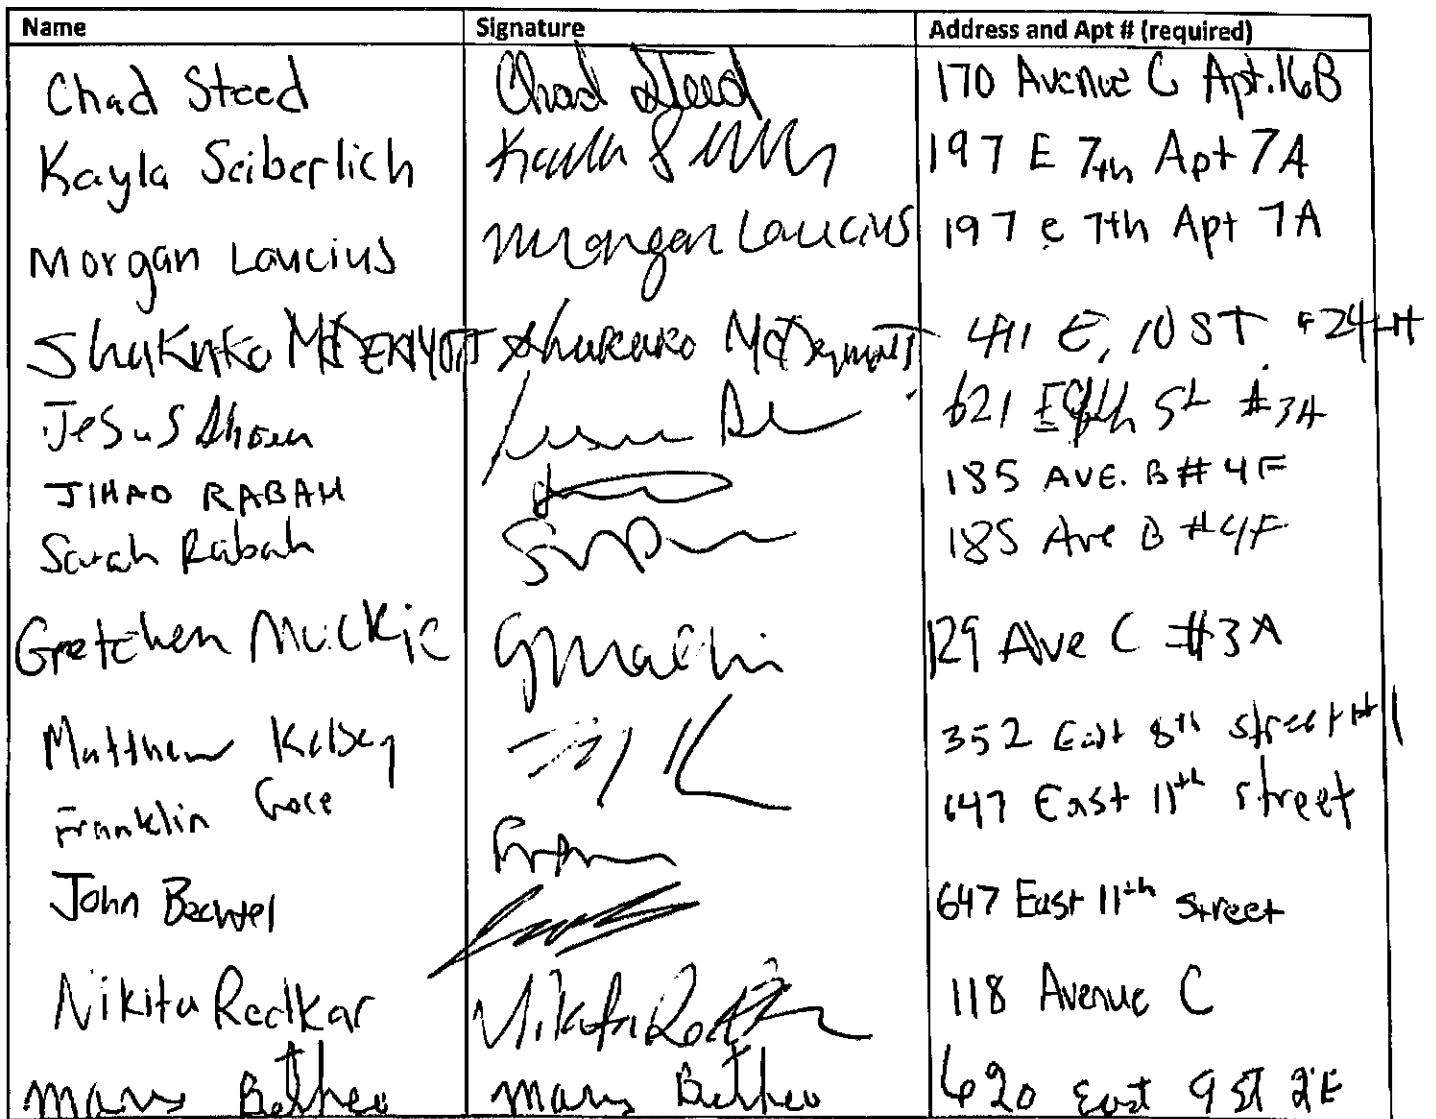 Name Signature Address and Apt # (required)
Chad Steed Chad Steed 170 Avenue C Apt. 16B
Kayla Seiberlich Kayla S 197 E 7th Apt 7A
Morgan Laucius Morgan Laucius 197 e 7th Apt 7A
McDermott McDermott 411 E, 10 ST
Jesus 621 E 9th St #3A
JIHAD RABAH 185 AVE. B # 4F
Sarah Rabah 185 Ave B #4F
Gretchen Muckic 129 Ave C #3A
Matthew Kelsey 352 East 8th street
Franklin 647 East 11th street
John Bechtel 647 East 11th Street
Nikita Redkar Nikita Redkar 118 Avenue C
620 East 9 St 2E